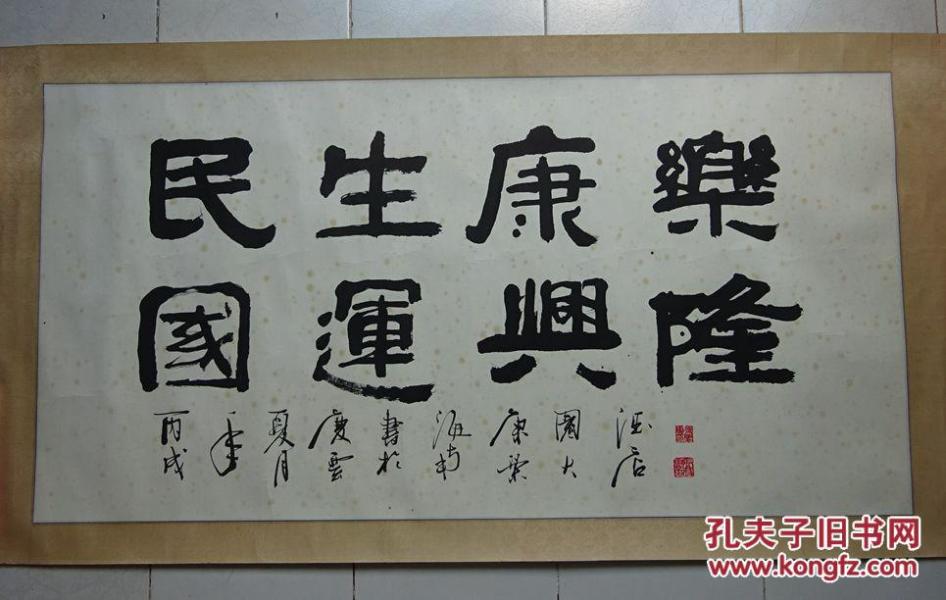 民生康樂
國運興隆
丙戌年夏月慶雲書於海南康樂園大酒店
孔夫子旧书网
www.kongfz.com